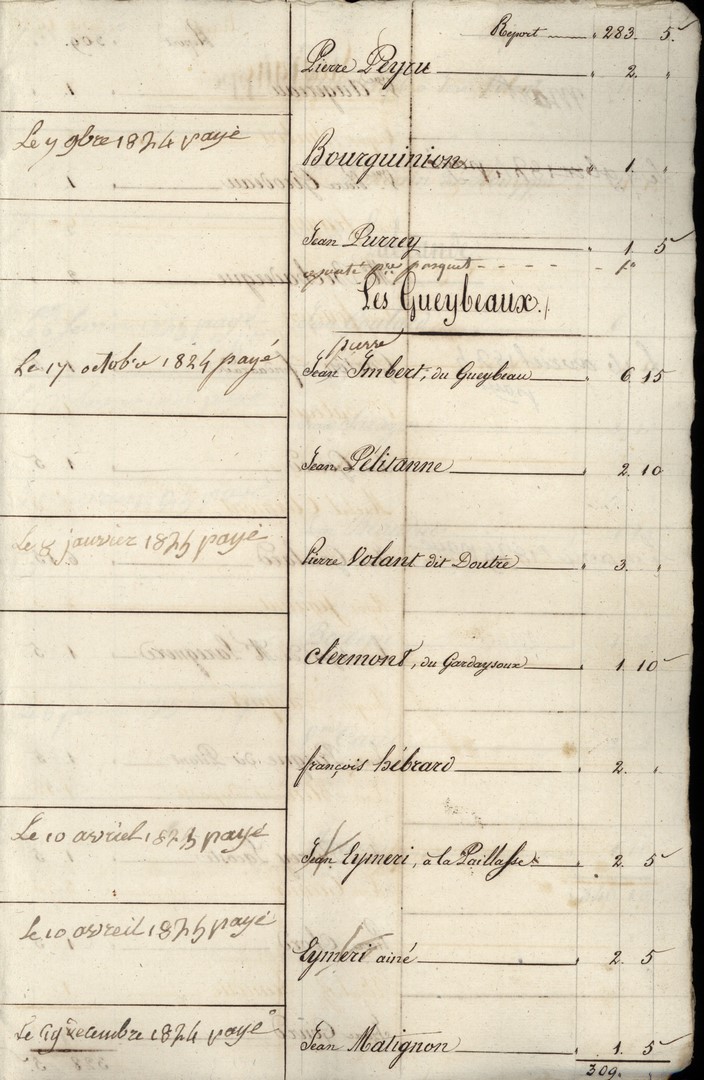 Report 283. 5.
Pierre Peyru 2.
Le 7 9bre 1824 payé
Bourguinion 1.
Jean Purrey 1. 5
ajouté pre
Les Gueybeaux.
pierre
Le 17 octobre 1824 payé
Jean Imbert, du Gueybeau 6. 15
Jean Pélitanne 2. 10
Le 8 janvier 1825 payé
Pierre Volant dit Doutre 3.
Clermont, du Gardaysoux 1. 10
françois hébrard 2.
Le 10 avriel 1825 payé
Jean Eymeri, à la Paillasse 2. 5
Le 10 avreil 1825 payé
Eymeri ainé 2. 5
Le 19 decembre 1824 payé
Jean Matignon 1. 5
309.